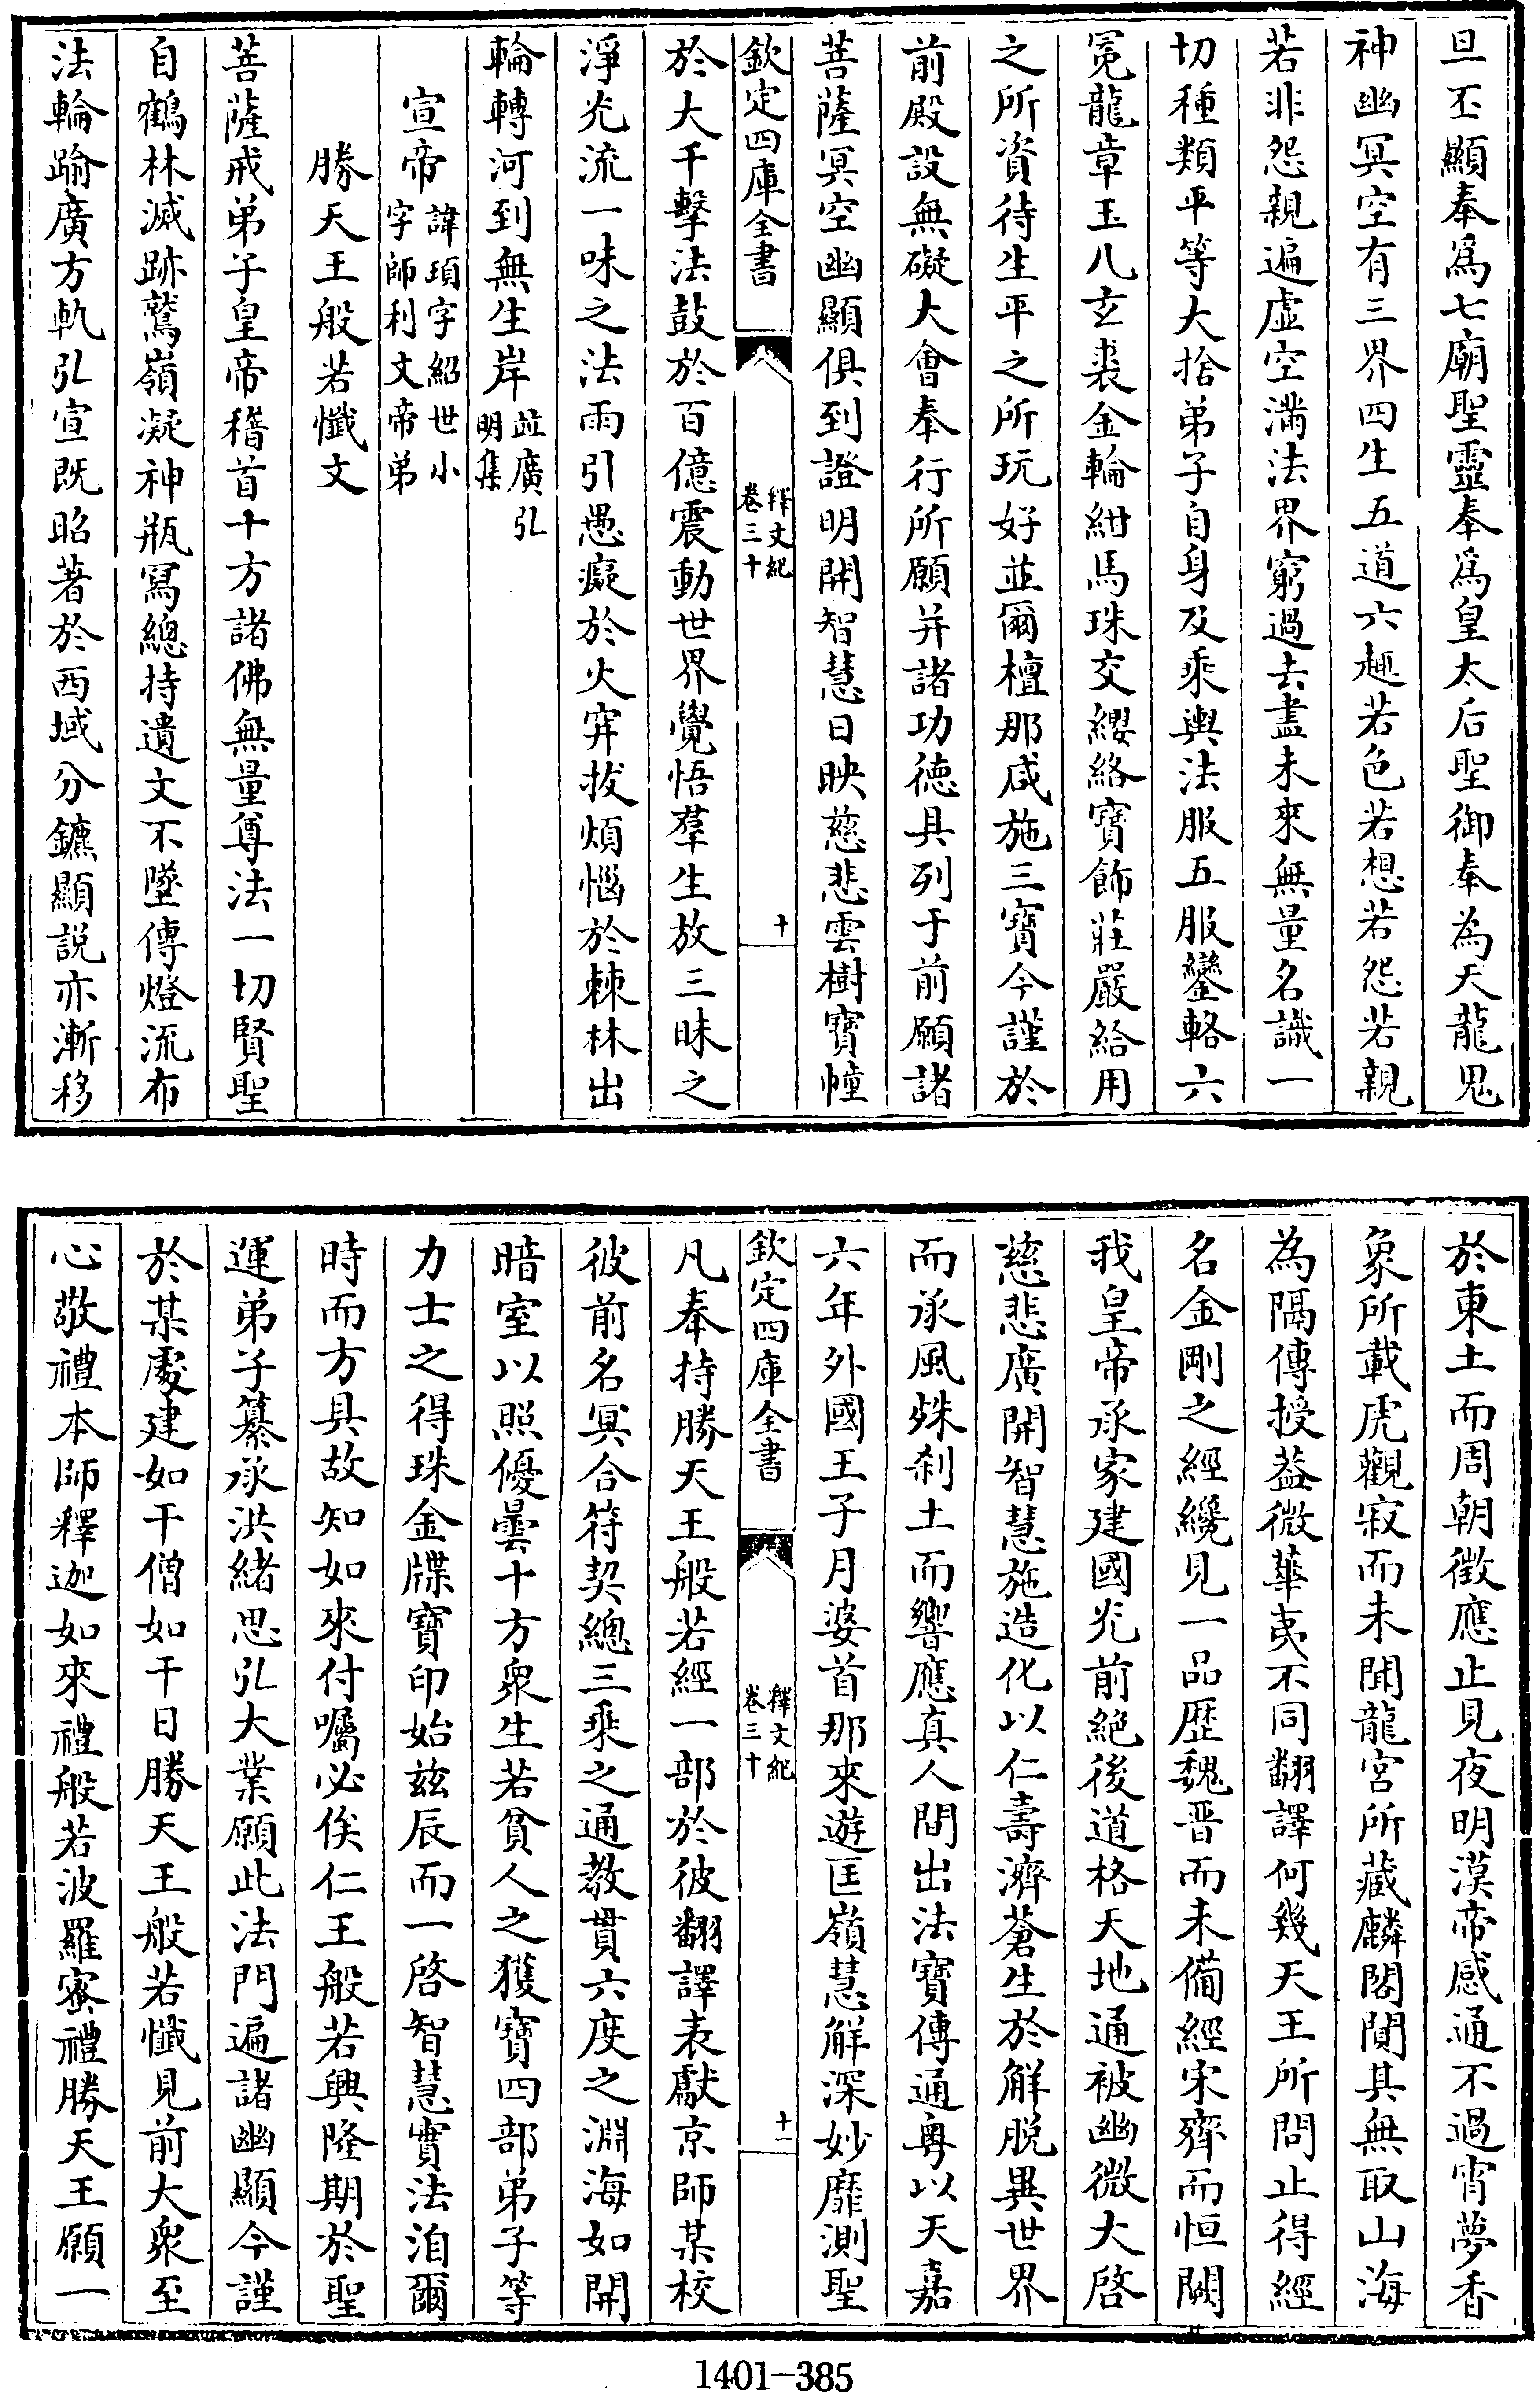 旦丕顯奉爲七廟聖靈奉爲皇太后聖御奉為天龍鬼
神幽冥空有三界四生五道六趣若色若想若怨若親
若非怨親遍虛空滿法界窮過去盡未來無量名識一
切種類平等大捨弟子自身及乘輿法服五服鑾輅六
冕龍章玉几玄裘金輪紺馬珠交纓絡寶飾莊嚴給用
之所資待生平之所玩好並爾檀那咸施三寶今謹於
前殿設無礙大會奉行所願并諸功德具列于前願諸
菩薩冥空幽顯俱到證明開智慧日映慈悲雲樹寶幢
欽定四庫全書
釋文紀
卷三十
十
於大千擊法鼓於百億震動世界覺悟羣生放三昧之
淨光流一味之法雨引愚癡於火穽拔煩惱於棘林出
輪轉河到無生岸
並廣弘
明集
宣帝
諱頊字紹世小
字師利文帝弟
勝天王般若懺文
菩薩戒弟子皇帝稽首十方諸佛無量尊法一切賢聖
自鶴林滅跡鷲嶺凝神瓶冩總持遺文不墜傳燈流布
法輪踰廣方軌弘宣既昭著於西域分鑣顯説亦漸移
於東土而周朝徵應止見夜明漢帝感通不過宵夢香
象所載虎觀寂而未聞龍宮所藏麟閣闃其無取山海
為隔傳授葢微華夷不同翻譯何幾天王所問止得經
名金剛之經纔見一品歴魏晋而未備經宋齊而恒闕
我皇帝承家建國光前絕後道格天地通被幽微大啓
慈悲廣開智慧施造化以仁壽濟蒼生於解脱異世界
而承風殊剎土而響應真人間出法寶傳通粵以天嘉
六年外國王子月婆首那來遊匡嶺慧解深妙靡測聖
欽定四庫全書
釋文紀
卷三十
十一
凡奉持勝天王般若經一部於彼翻譯表獻京師某校
彼前名冥合符契總三乘之通教貫六度之淵海如開
暗室以照優曇十方衆生若貧人之獲寶四部弟子等
力士之得珠金牒寶印始兹辰而一啓智慧實法洎爾
時而方具故知如來付囑必俟仁王般若興隆期於聖
運弟子纂承洪緒思弘大業願此法門遍諸幽顯今謹
於某處建如干僧如干日勝天王般若懺見前大衆至
心敬禮本師釋迦如來禮般若波羅蜜禮勝天王願一
1401-385